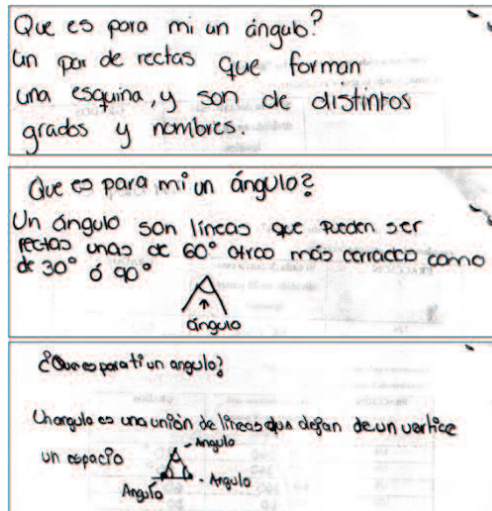 Que es para mi un ángulo?
un par de rectas que forman
una esquina, y son de distintos
grados y nombres.
Que es para mi un ángulo?
Un ángulo son líneas que pueden ser
rectas unas de 60° otros más cerrados como
de 30° ó 90°
ángulo
¿Que es para ti un angulo?
Un angulo es una unión de líneas que dejan de un vertice
un espacio
Angulo
Angulo
Angulo